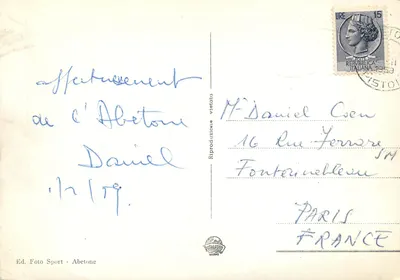 affectueusement
de l'Abetone
Daniel
1/1/59
Ed. Foto Sport - Abetone
Riproduzione vietata
LIRE 15
Mr Daniel Coen
16 Rue Ferrare
SM
Fontainebleau
PARIS
FRANCE